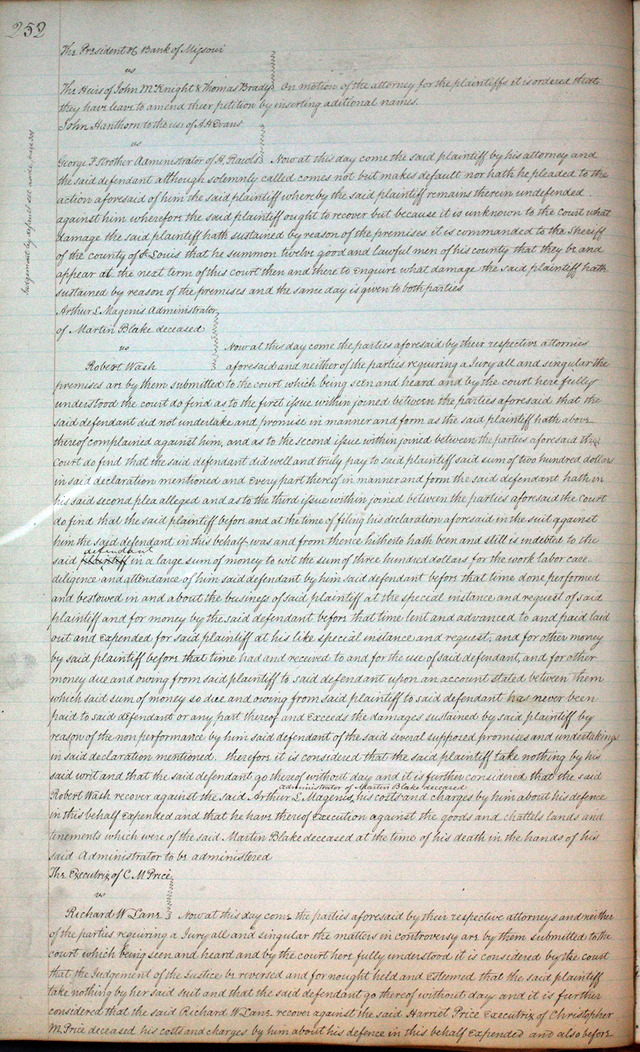 252
The President &c Bank of Missouri
vs
The Heirs of John McKnight & Thomas Brady On motion of the attorney for the plaintiffs it is ordered that
they have leave to amend their petition by inserting aditional names.
John Hanthorn to the use of A H Evans
vs
George F Strother Administrator of H. Rawls Now at this day come the said plaintiff by his attorney and
the said defendant although solemnly called comes not but makes default nor hath he pleaded to the
action aforesaid of him the said plaintiff whereby the said plaintiff remains therein undefended
against him wherefore the said plaintiff ought to recover but because it is unknown to the court what
damage the said plaintiff hath sustained by reason of the premises it is commanded to the Sheriff
of the county of St Louis that he summon twelve good and lawful men of his county that they be and
appear at the next term of this court then and there to enquire what damage the said plaintiff hath
sustained by reason of the premises and the same day is given to both parties
Judgement by default see
Arthur L Magenis Administrator
of Martin Blake deceased
vs Now at this day come the parties aforesaid by their respective attornies
Robert Wash aforesaid and neither of the parties requiring a Jury all and singular the
premises are by them submitted to the court which being seen and heard and by the court here fully
understood the court do find as to the first issue within joined between the parties aforesaid that the
said defendant did not undertake and promise in manner and form as the said plaintiff hath above
thereof complained against him, and as to the second issue within joined between the parties aforesaid the
court do find that the said defendant did well and truly pay to said plaintiff said sum of two hundred dollars
in said declaration mentioned and every part thereof in manner and form the said defendant hath in
his said second plea alleged and as to the third issue within joined between the parties aforesaid the Court
do find that the said plaintiff before and at the time of filing his declaration aforesaid in the suit against
him the said defendant in this behalf was and from thence hitherto hath been and still is indebted to the
defendant
said plaintiff in a large sum of money to wit the sum of three hundred dollars for the work labor care
diligence and attendance of him said defendant by him said defendant before that time done performed
and bestowed in and about the business of said plaintiff at the special instance and request of said
plaintiff and for money by the said defendant before that time lent and advanced to and paid laid
out and expended for said plaintiff at his like special instance and request, and for other money
by said plaintiff before that time had and received to and for the use of said defendant, and for other
money due and owing from said plaintiff to said defendant upon an account stated between them
which said sum of money so due and owing from said plaintiff to said defendant has never been
paid to said defendant or any part thereof and exceeds the damages sustained by said plaintiff by
reason of the non performance by him said defendant of the said several supposed promises and undertakings
in said declaration mentioned. therefore it is considered that the said plaintiff take nothing by his
said writ and that the said defendant go thereof without day and it is further considered that the said
administrator of Martin Blake deceased
Robert Wash recover against the said Arthur L Magenis, his costs and charges by him about his defence
in this behalf expended and that he have thereof execution against the goods and chattels lands and
tenements which were of the said Martin Blake deceased at the time of his death in the hands of his
said Administrator to be administered
The Executrix of C M Price
vs
Richard W Lane Now at this day come the parties aforesaid by their respective attorneys and neither
of the parties requiring a Jury all and singular the matters in controversy are by them submitted to the
court which being seen and heard and by the court here fully understood it is considered by the court
that the Judgement of the Justice be reversed and for nought held and esteemed that the said plaintiff
take nothing by her said suit and that the said defendant go thereof without day and it is further
considered that the said Richard W Lane recover against the said Harriet Price Executrix of Christopher
M. Price deceased his costs and charges by him about his defence in this behalf expended and also before